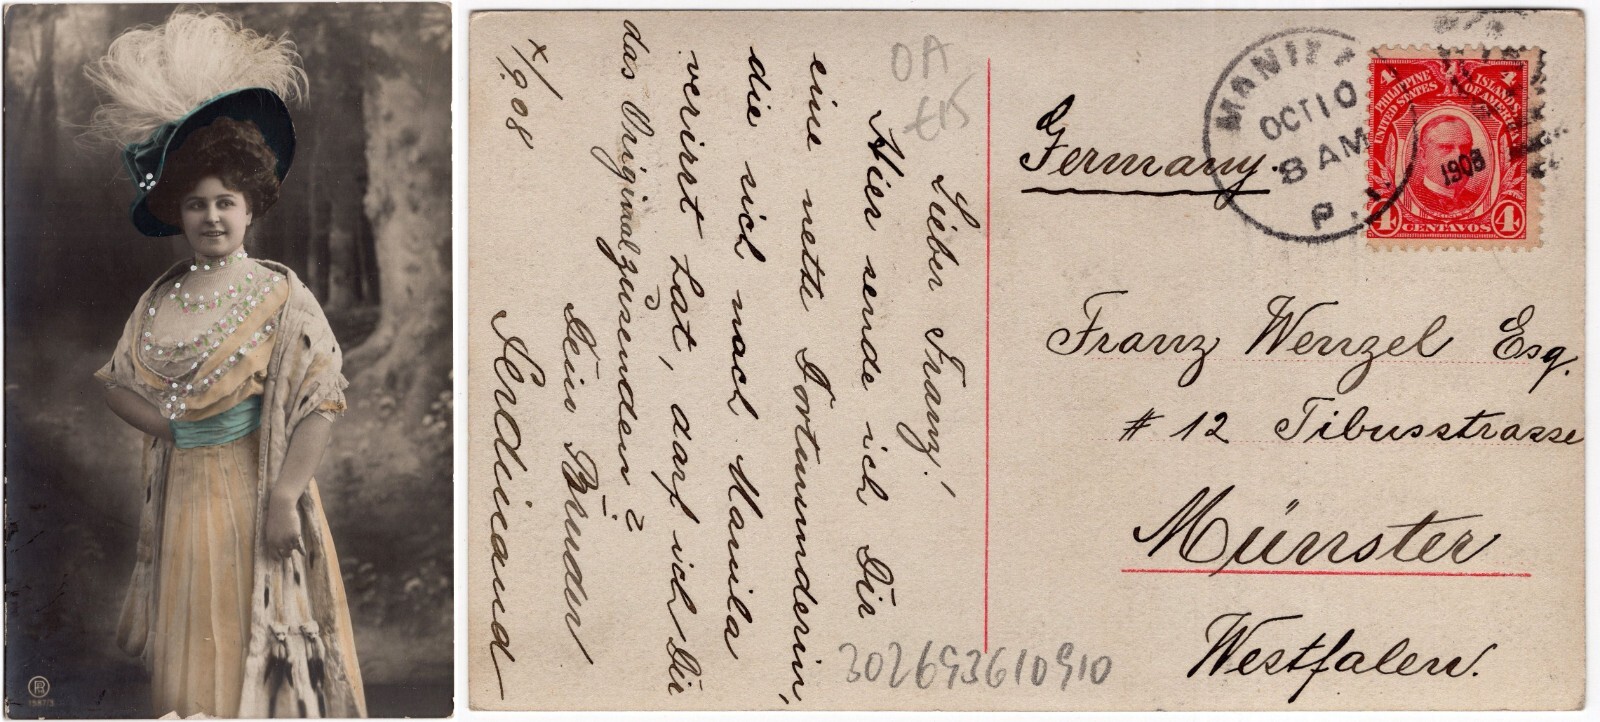 OA
€15
Lieber Franz!
Hier sende ich Dir
eine nette Dortmunderin,
die sich nach Manila
verirrt hat, darf ich Dir
das Original zusenden?
Dein Bruder
Ferdinand
x/9 08
302693610910
Germany.
MANILA
OCT 10
8 AM
P.I.
1908
4 4
PHILIPPINE ISLANDS
UNITED STATES OF AMERICA
4 CENTAVOS 4
Franz Wenzel Esq.
# 12 Tibusstrasse
Münster
Westfalen.